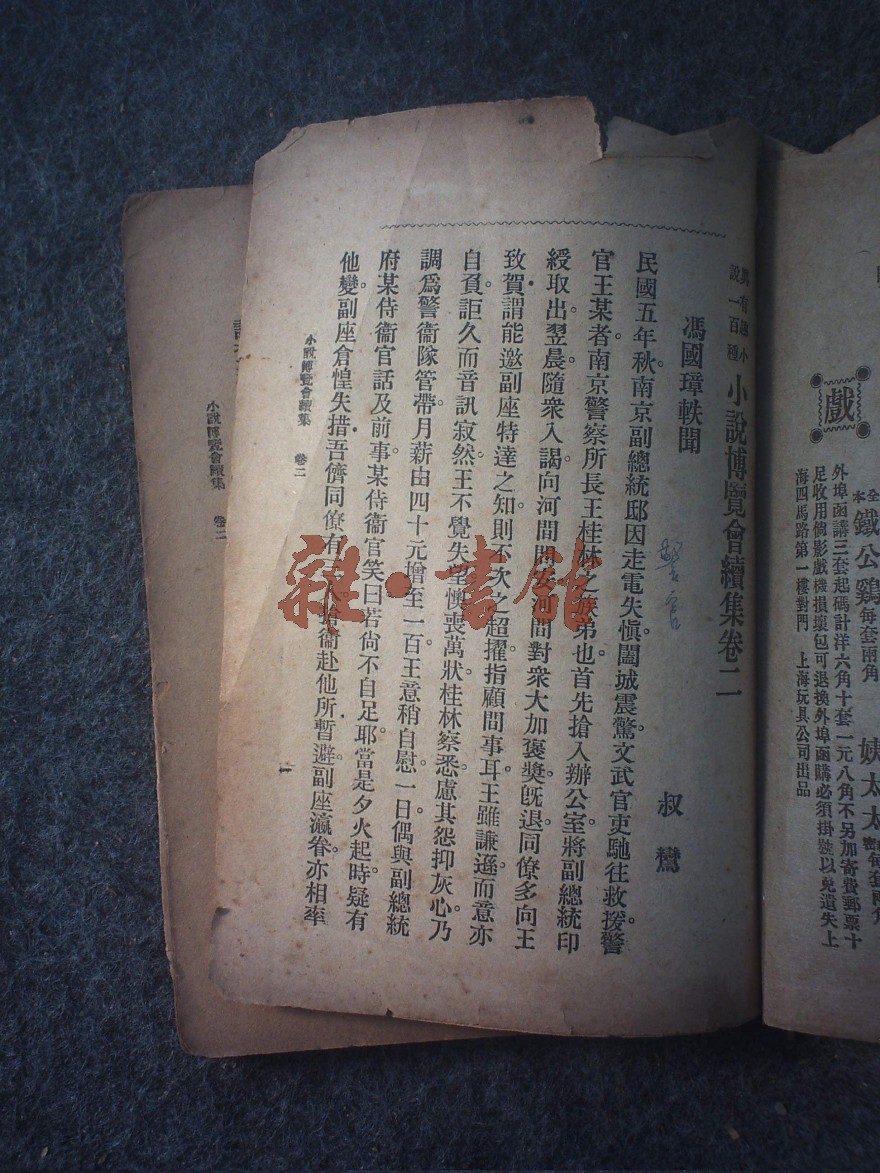 戲
全本 鐵公鷄 每套兩角 姨太太 每套兩角
外埠函講三套起碼計洋六角十套一元八角不另加寄費郵票十
足收用倘影戲機損壞包可退換外埠函購必須掛號以免遺失上
海四馬路第一樓對門 上海玩具公司出品
說一百種 小說博覽會續集卷二
馮國璋軼聞 叔鸞
警官
民國五年秋。南京副總統邸因走電失愼。闔城震驚。文武官吏馳往救援。警
官王某者。南京警察所長王桂林之族弟也。首先搶入辦公室。將副總統印
綬取出。翌晨。隨衆入謁向河間問安。河間對衆大加褒獎。旣退。同僚多向王
致賀。謂能邀副座特達之知。則不次之超擢。指顧間事耳。王雖謙遜。而意亦
自負。詎久而音訊寂然。王不覺失望。懊喪萬狀。桂林察悉。慮其怨抑灰心。乃
調爲警衞隊管帶。月薪由四十元增至一百。王意稍自慰。一日偶與副總統
府某侍衞官話及前事。某侍衞官笑曰。若尙不自足耶。當是夕火起時。疑有
他變。副座倉惶失措。吾儕同僚有人搶衞赴他所暫避。副座瀛眷。亦相率
小說博覽會續集 卷二 一
小說博覽會續集 卷二
雜·書館